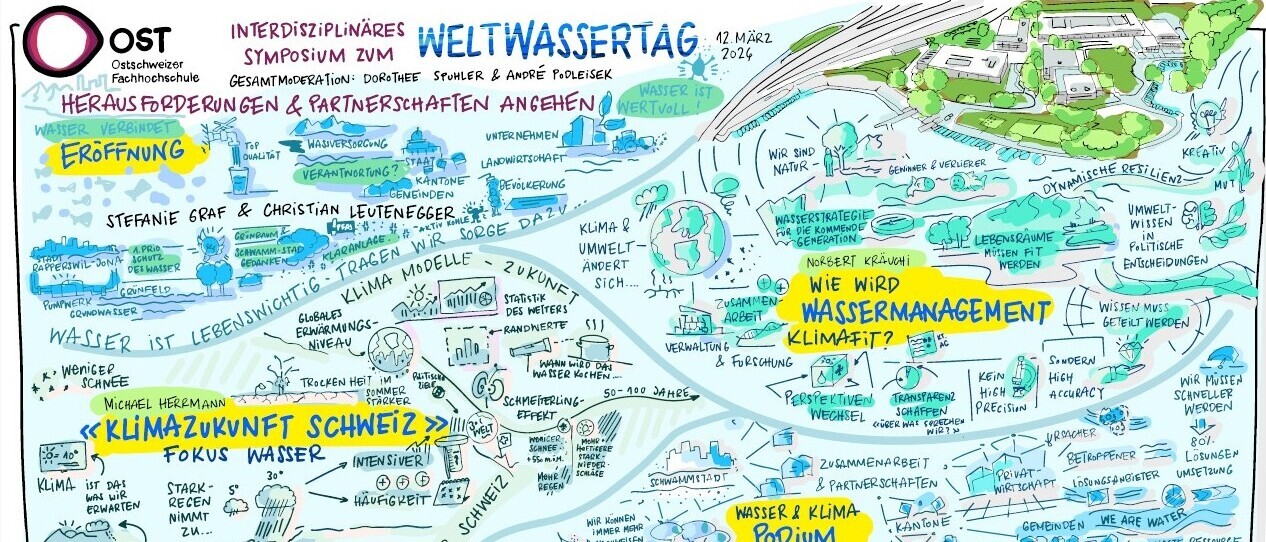 OST
Ostschweizer
Fachhochschule
INTERDISZIPLINÄRES
SYMPOSIUM ZUM
WELTWASSERTAG
12. MÄRZ
2026
GESAMTMODERATION: DOROTHEE SPUHLER & ANDRÉ PODLEISEK
HERAUSFORDERUNGEN & PARTNERSCHAFTEN ANGEHEN
WASSER IST
WERTVOLL!
WASSER VERBINDET
ERÖFFNUNG
TOP
QUALITÄT
WASSVERSORGUNG
VERANTWORTUNG?
STAAT
KANTONE
GEMEINDEN
UNTERNEHMEN
LANDWIRTSCHAFT
BEVÖLKERUNG
STEFANIE GRAF & CHRISTIAN LEUTENEGGER
STADT
RAPPERSWIL-JONA
1. PRIO
SCHUTZ
DES WASSER
GRÜNRAUM &
SCHWAMM-STAD
GEDANKEN
PFAS
AKTIV KOHLE
KLÄRANLAGE
PUMPWERK
GRÜNFELD
GRUNDWASSER
WASSER IST LEBENSWICHTIG TRAGEN WIR SORGE DAZU...
KLIMA MODELLE - ZUKUNFT
GLOBALES
ERWÄRMUNGS-
NIVEAU
STATISTIK
DES WETTERS
RANDWERTE
WANN WIRD DAS
WASSER KOCHEN...
WENIGER
SCHNEE
TROCKENHEIT IM
SOMMER
STÄRKER
POLITISCHE
ZIELE
SCHMETTERLING-
EFFEKT
50-100 JAHRE
MICHAEL HERRMANN
«KLIMAZUKUNFT SCHWEIZ»
FOKUS WASSER
WELT
WENIGER
SCHNEE
+550 m.ü.M.
MEHR
REGEN
MEHR+
HEFTIGERE
STARK-
NIEDER-
SCHLÄGE
10°
KLIMA IST DAS
WAS WIR
ERWARTEN
STARK-
REGEN
NIMMT
ZU...
5°
30°
INTENSIVER
HÄUFIGKEIT
SCHWEIZ
KLIMA &
UMWELT-
ÄNDERT
SICH....
WIR SIND
NATUR
GEWINNER & VERLIERER
KREATIV
DYNAMISCHE RESILIENZ
MUT
WASSERSTRATEGIE
FÜR DIE KOMMENDE
GENERATION
LEBENSRÄUME
MÜSSEN FIT
WERDEN
UMWELT-
WISSEN
IN
POLITISCHE
ENTSCHEIDUNGEN
NORBERT KRÄUCHI
WIE WIRD
WASSERMANAGEMENT
KLIMAFIT?
ZUSAMMEN-
ARBEIT
VERWALTUNG
& FORSCHUNG
WISSEN MUSS
GETEILT WERDEN
PERSPEKTIVEN
WECHSEL
TRANSPARENZ
SCHAFFEN
«ÜBER WAS SPRECHEN
WIR?»
KEIN
HIGH
PRECISION
SONDERN
HIGH
ACCURACY
WIR MÜSSEN
SCHNELLER
WERDEN
SCHWAMMSTADT
ZUSAMMENARBEIT
& PARTNERSCHAFTEN
PRIVAT-
WIRTSCHAFT
BETROFFENER
LÖSUNGSANBIETER
80%
LÖSUNGEN
UMSETZUNG
WASSER & KLIMA
PODIUM
KANTONE
GEMEINDEN
WE ARE WATER
WIR KÖNNEN
IMMER MEHR